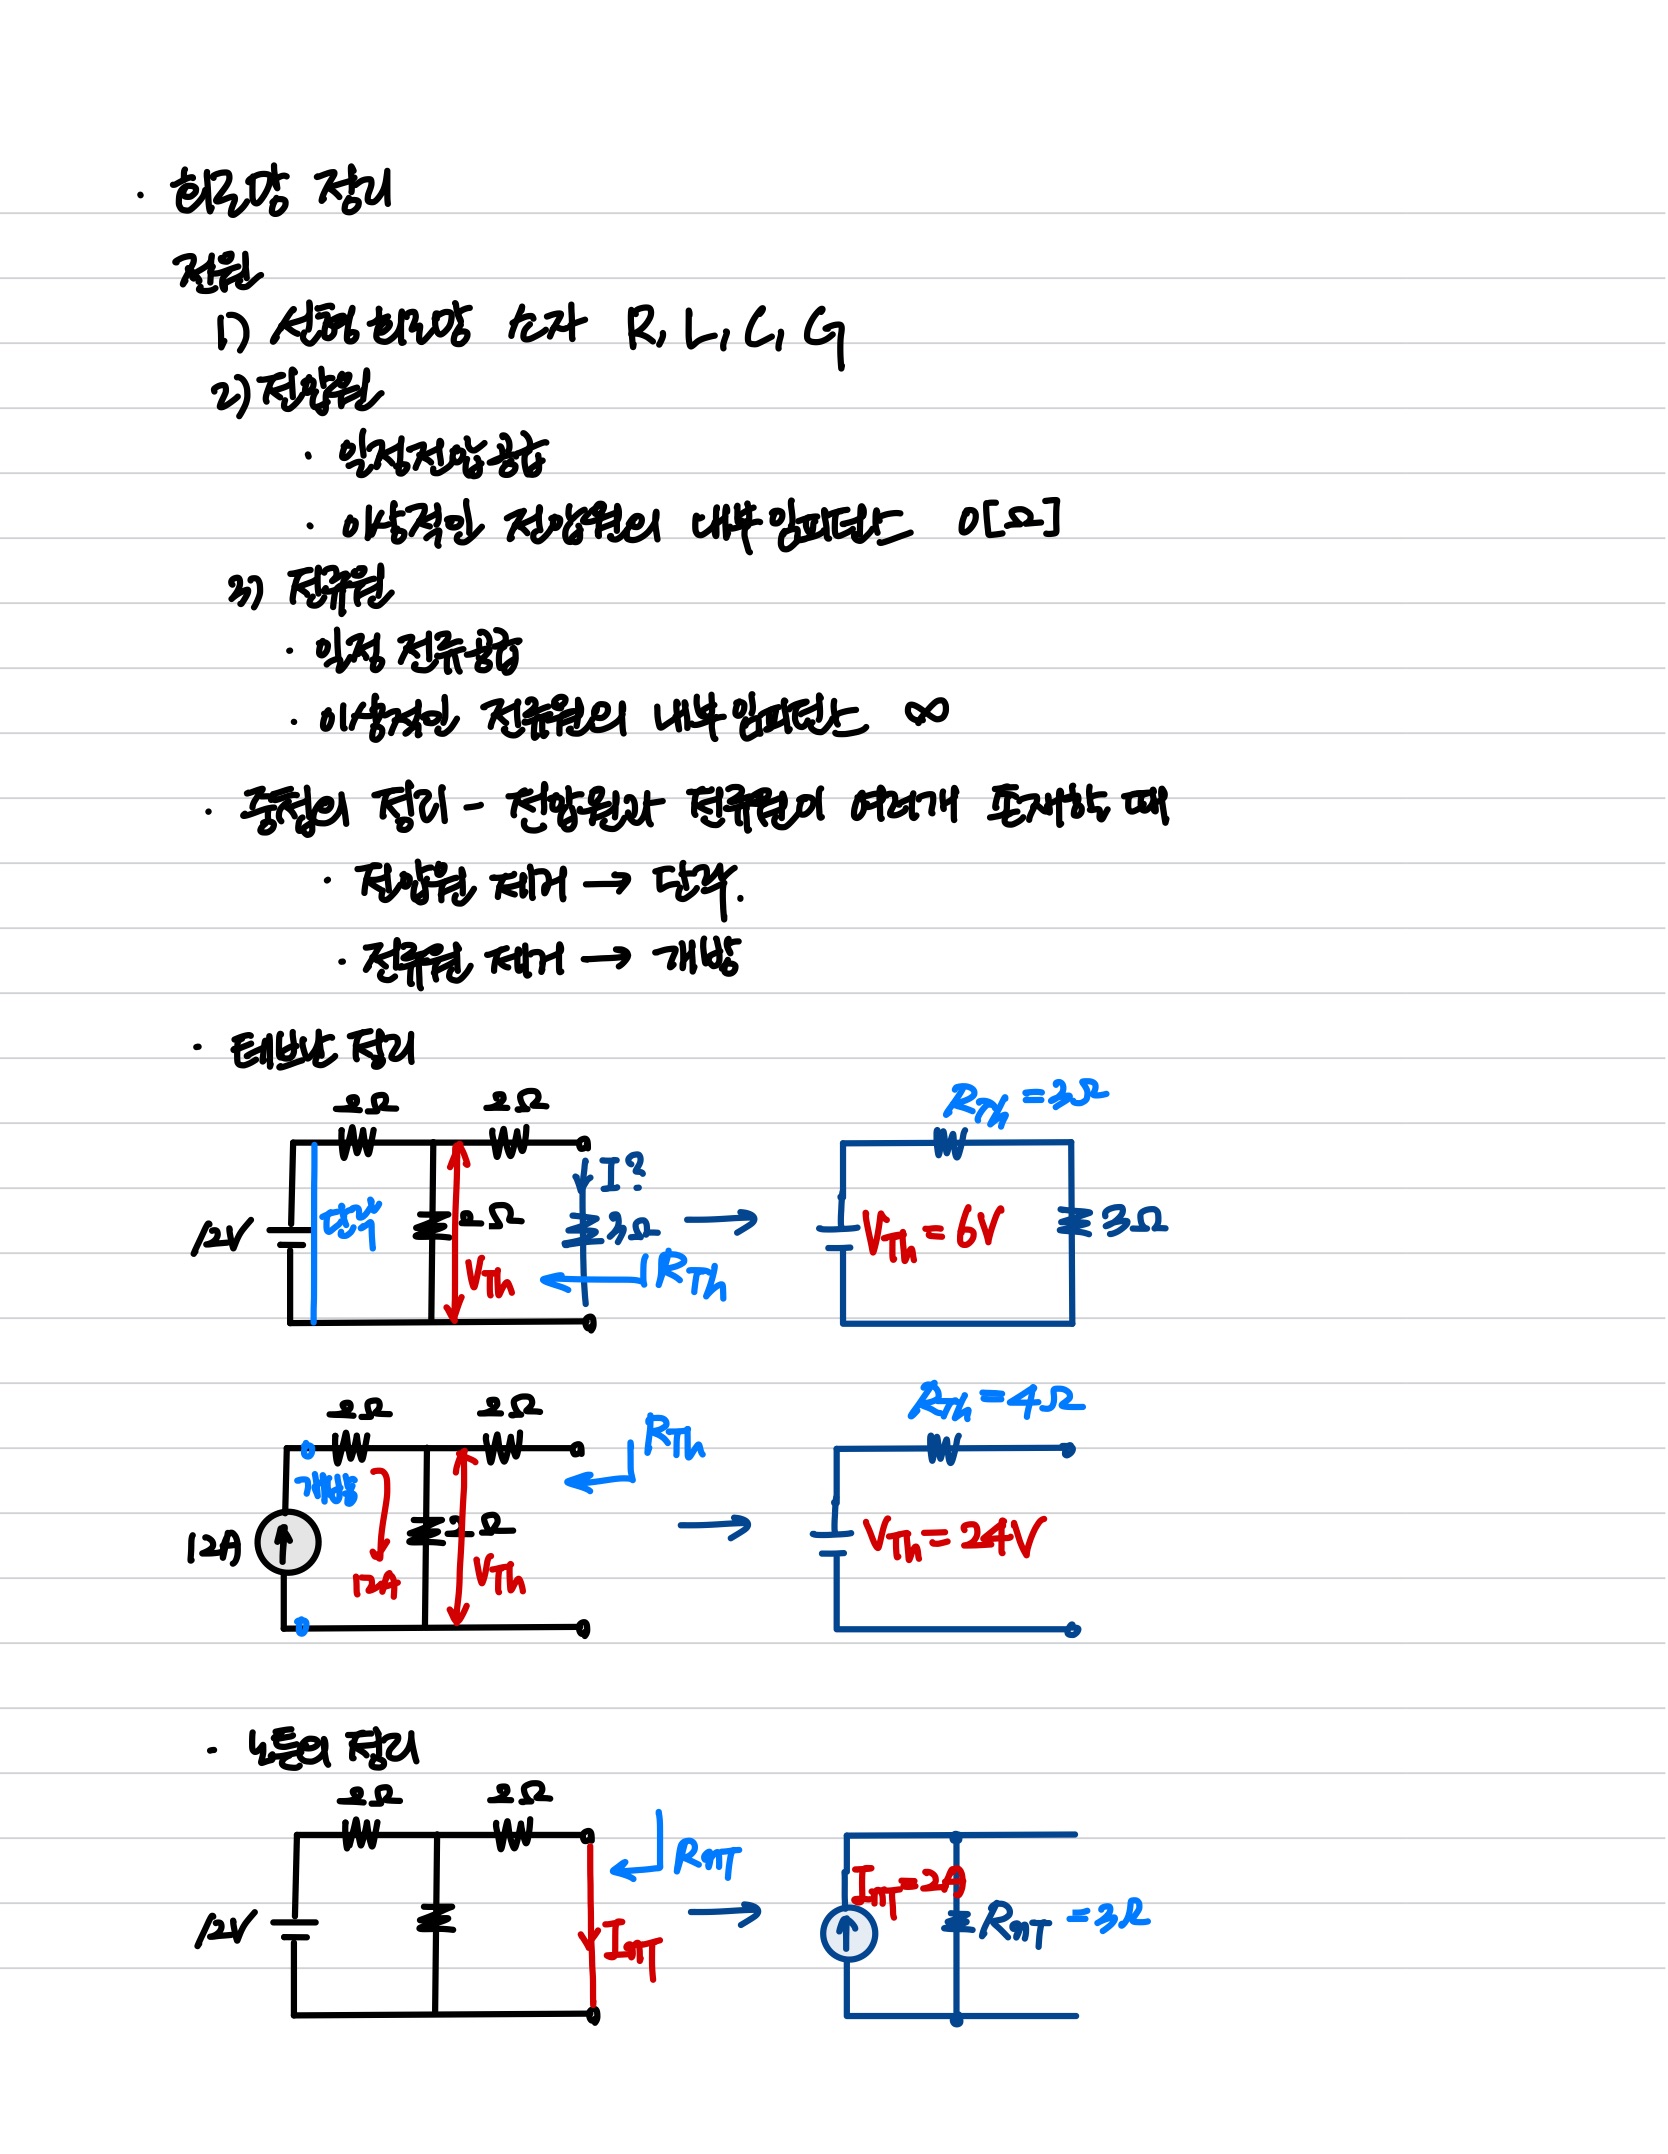 · 회로망 정리
전원
1) 선형 회로망 소자 R, L, C, G
2) 전압원
· 일정전압공급
· 이상적인 전압원의 내부임피던스 0[Ω]
3) 전류원
· 일정 전류공급
· 이상적인 전류원의 내부임피던스 ∞
· 중첩의 정리 - 전압원과 전류원이 여러개 존재할 때
· 전압원 제거 → 단락.
· 전류원 제거 → 개방
· 테브난 정리
2Ω 2Ω RTh = 3Ω
I?
12V 단락 2Ω 3Ω → VTh = 6V 3Ω
VTh RTh
2Ω 2Ω RTh RTh = 4Ω
개방
12A 2Ω → VTh = 24V
12A VTh
· 노튼의 정리
2Ω 2Ω
RnT InT = 2A
12V → RnT = 3Ω
InT